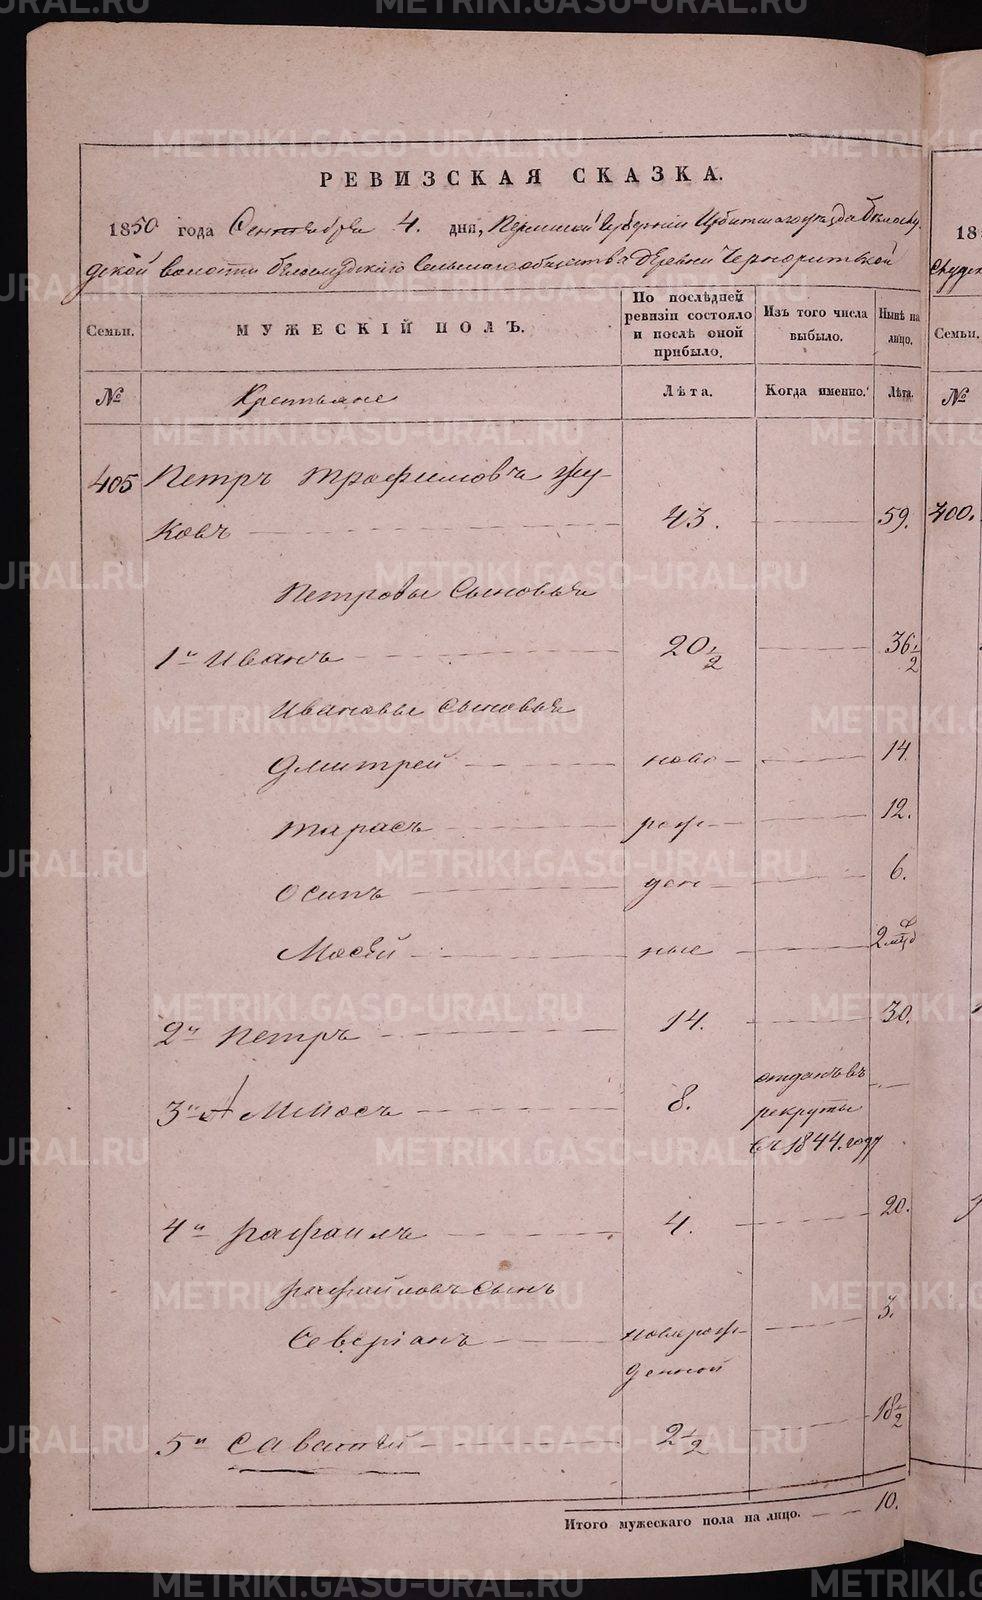 РЕВИЗСКАЯ СКАЗКА.
1850 года Сентября 4. дня, Пермской Губернии Ирбитскаго уезда Белослу-
дской волости Белослудскаго Сельскаго общества Деревни Черноритской
Семьи. МУЖЕСКІЙ ПОЛЪ. По послѣдней ревизіи состояло и послѣ оной прибыло. Изъ того числа выбыло. Нынѣ на лицо.
№ Крестьяне Лѣта. Когда именно. Лѣта.
405 Петръ Трофимовъ Жу-
ковъ 43. 59.
Петровы Сыновья
1й Иванъ 20 1/2 36 1/2
Ивановы сыновья
Дмитрей ново 14.
Тарасъ рож 12.
Осипъ ден 6.
Мосѣй ные 2 мѣсц
2й Петръ 14. 30.
3й Амосъ 8. отданъ въ
рекруты
въ 1844. году
4й Рафаилъ 4. 20.
Рафаиловъ сынъ
Северіанъ новорож- 3.
денной
5й Саватѣй 2 1/2 18 1/2
Итого мужескаго пола на лицо. 10.
18
Семьи.
№
700.
METRIKI.GASO-URAL.RU